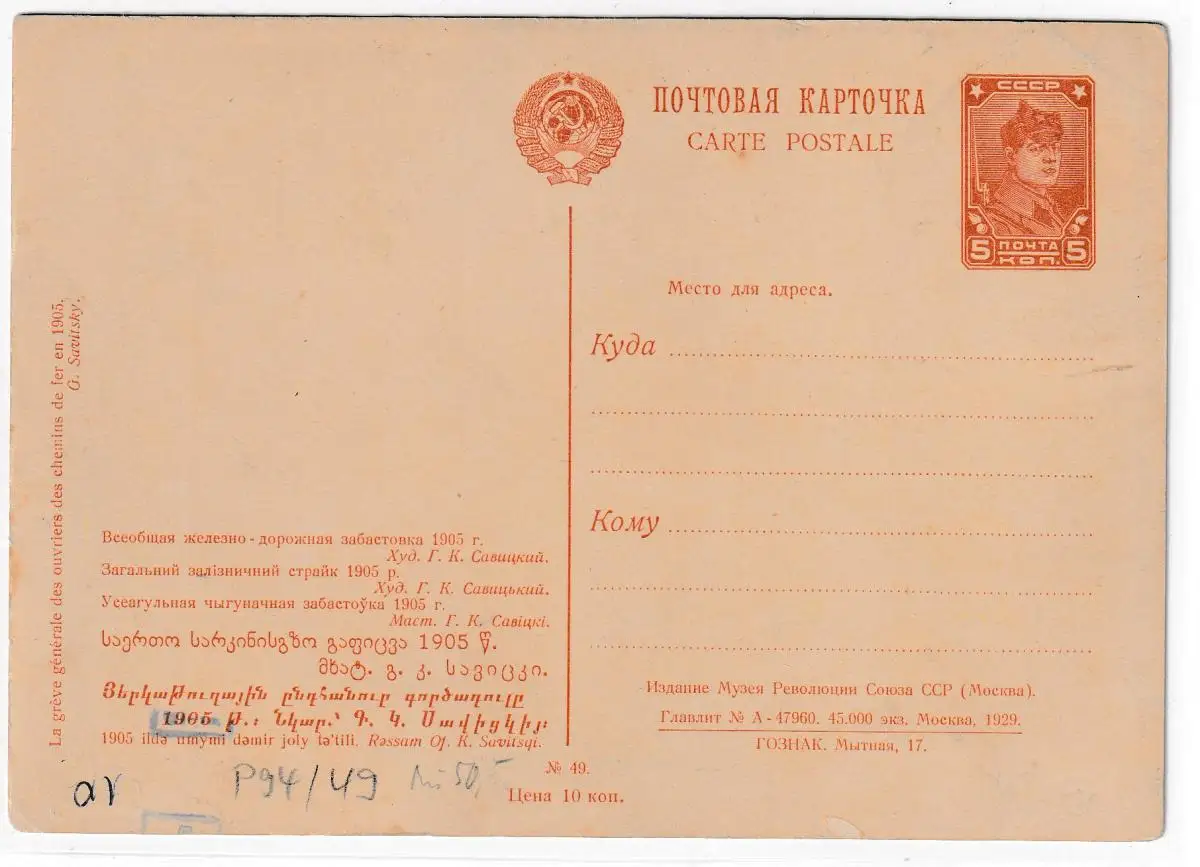 ПОЧТОВАЯ КАРТОЧКА
CARTE POSTALE
СССР
5 ПОЧТА 5
КОП.
Место для адреса.
Куда
Кому
La grève générale des ouvriers des chemins de fer en 1905.
G. Savitsky.
Всеобщая железно-дорожная забастовка 1905 г.
Худ. Г. К. Савицкий.
Загальний залізничний страйк 1905 р.
Худ. Г. К. Савицький.
Усеагульная чыгуначная забастоўка 1905 г.
Маст. Г. К. Савіцкі.
საერთო სარკინისგზო გაფიცვა 1905 წ.
მხატ. გ. კ. სავიცკი.
Յերկաթուղային ընդհանուր գործադուլը
1905 թ.: Նկար՝ Գ. Կ. Սավիցկիյ:
1905 ildə umymi dəmir joly tə'tili. Rəssam Of. K. Savitsqi.
Издание Музея Революции Союза ССР (Москва).
Главлит № А-47960. 45.000 экз. Москва, 1929.
ГОЗНАК. Мытная, 17.
№ 49.
Цена 10 коп.
P94/49